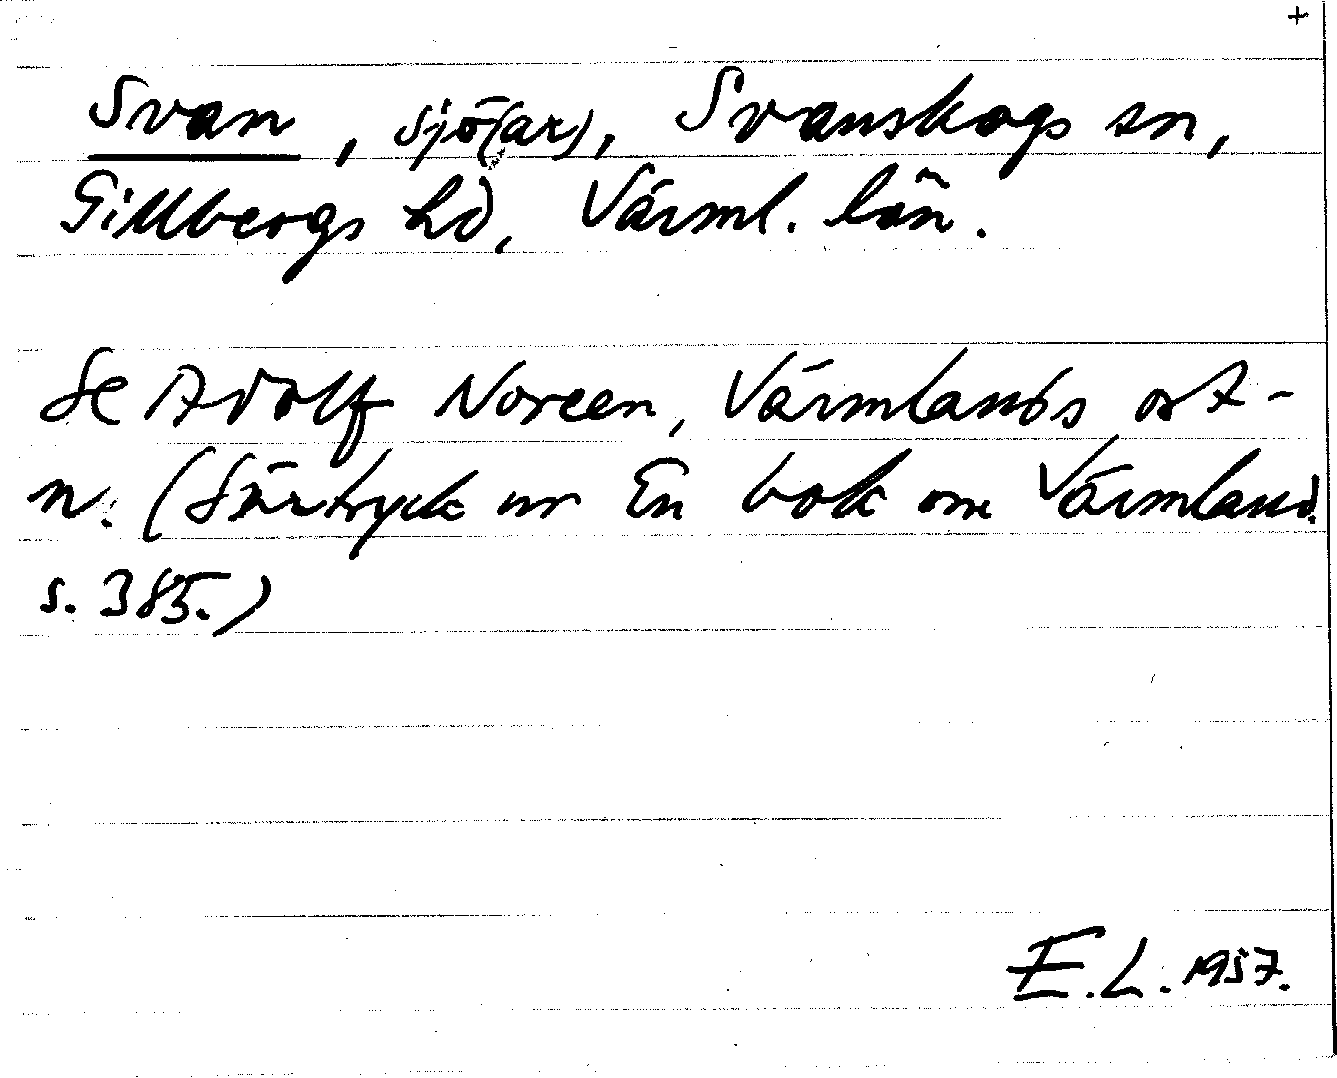 +
Svan, sjö(ar), Svanskogs sn,
Gillbergs hd, Värml. län.
Se Adolf Noreen, Värmlands ort-
n. (Särtryck ur En bok om Värmland.
s. 385.)
E.L. 1957.